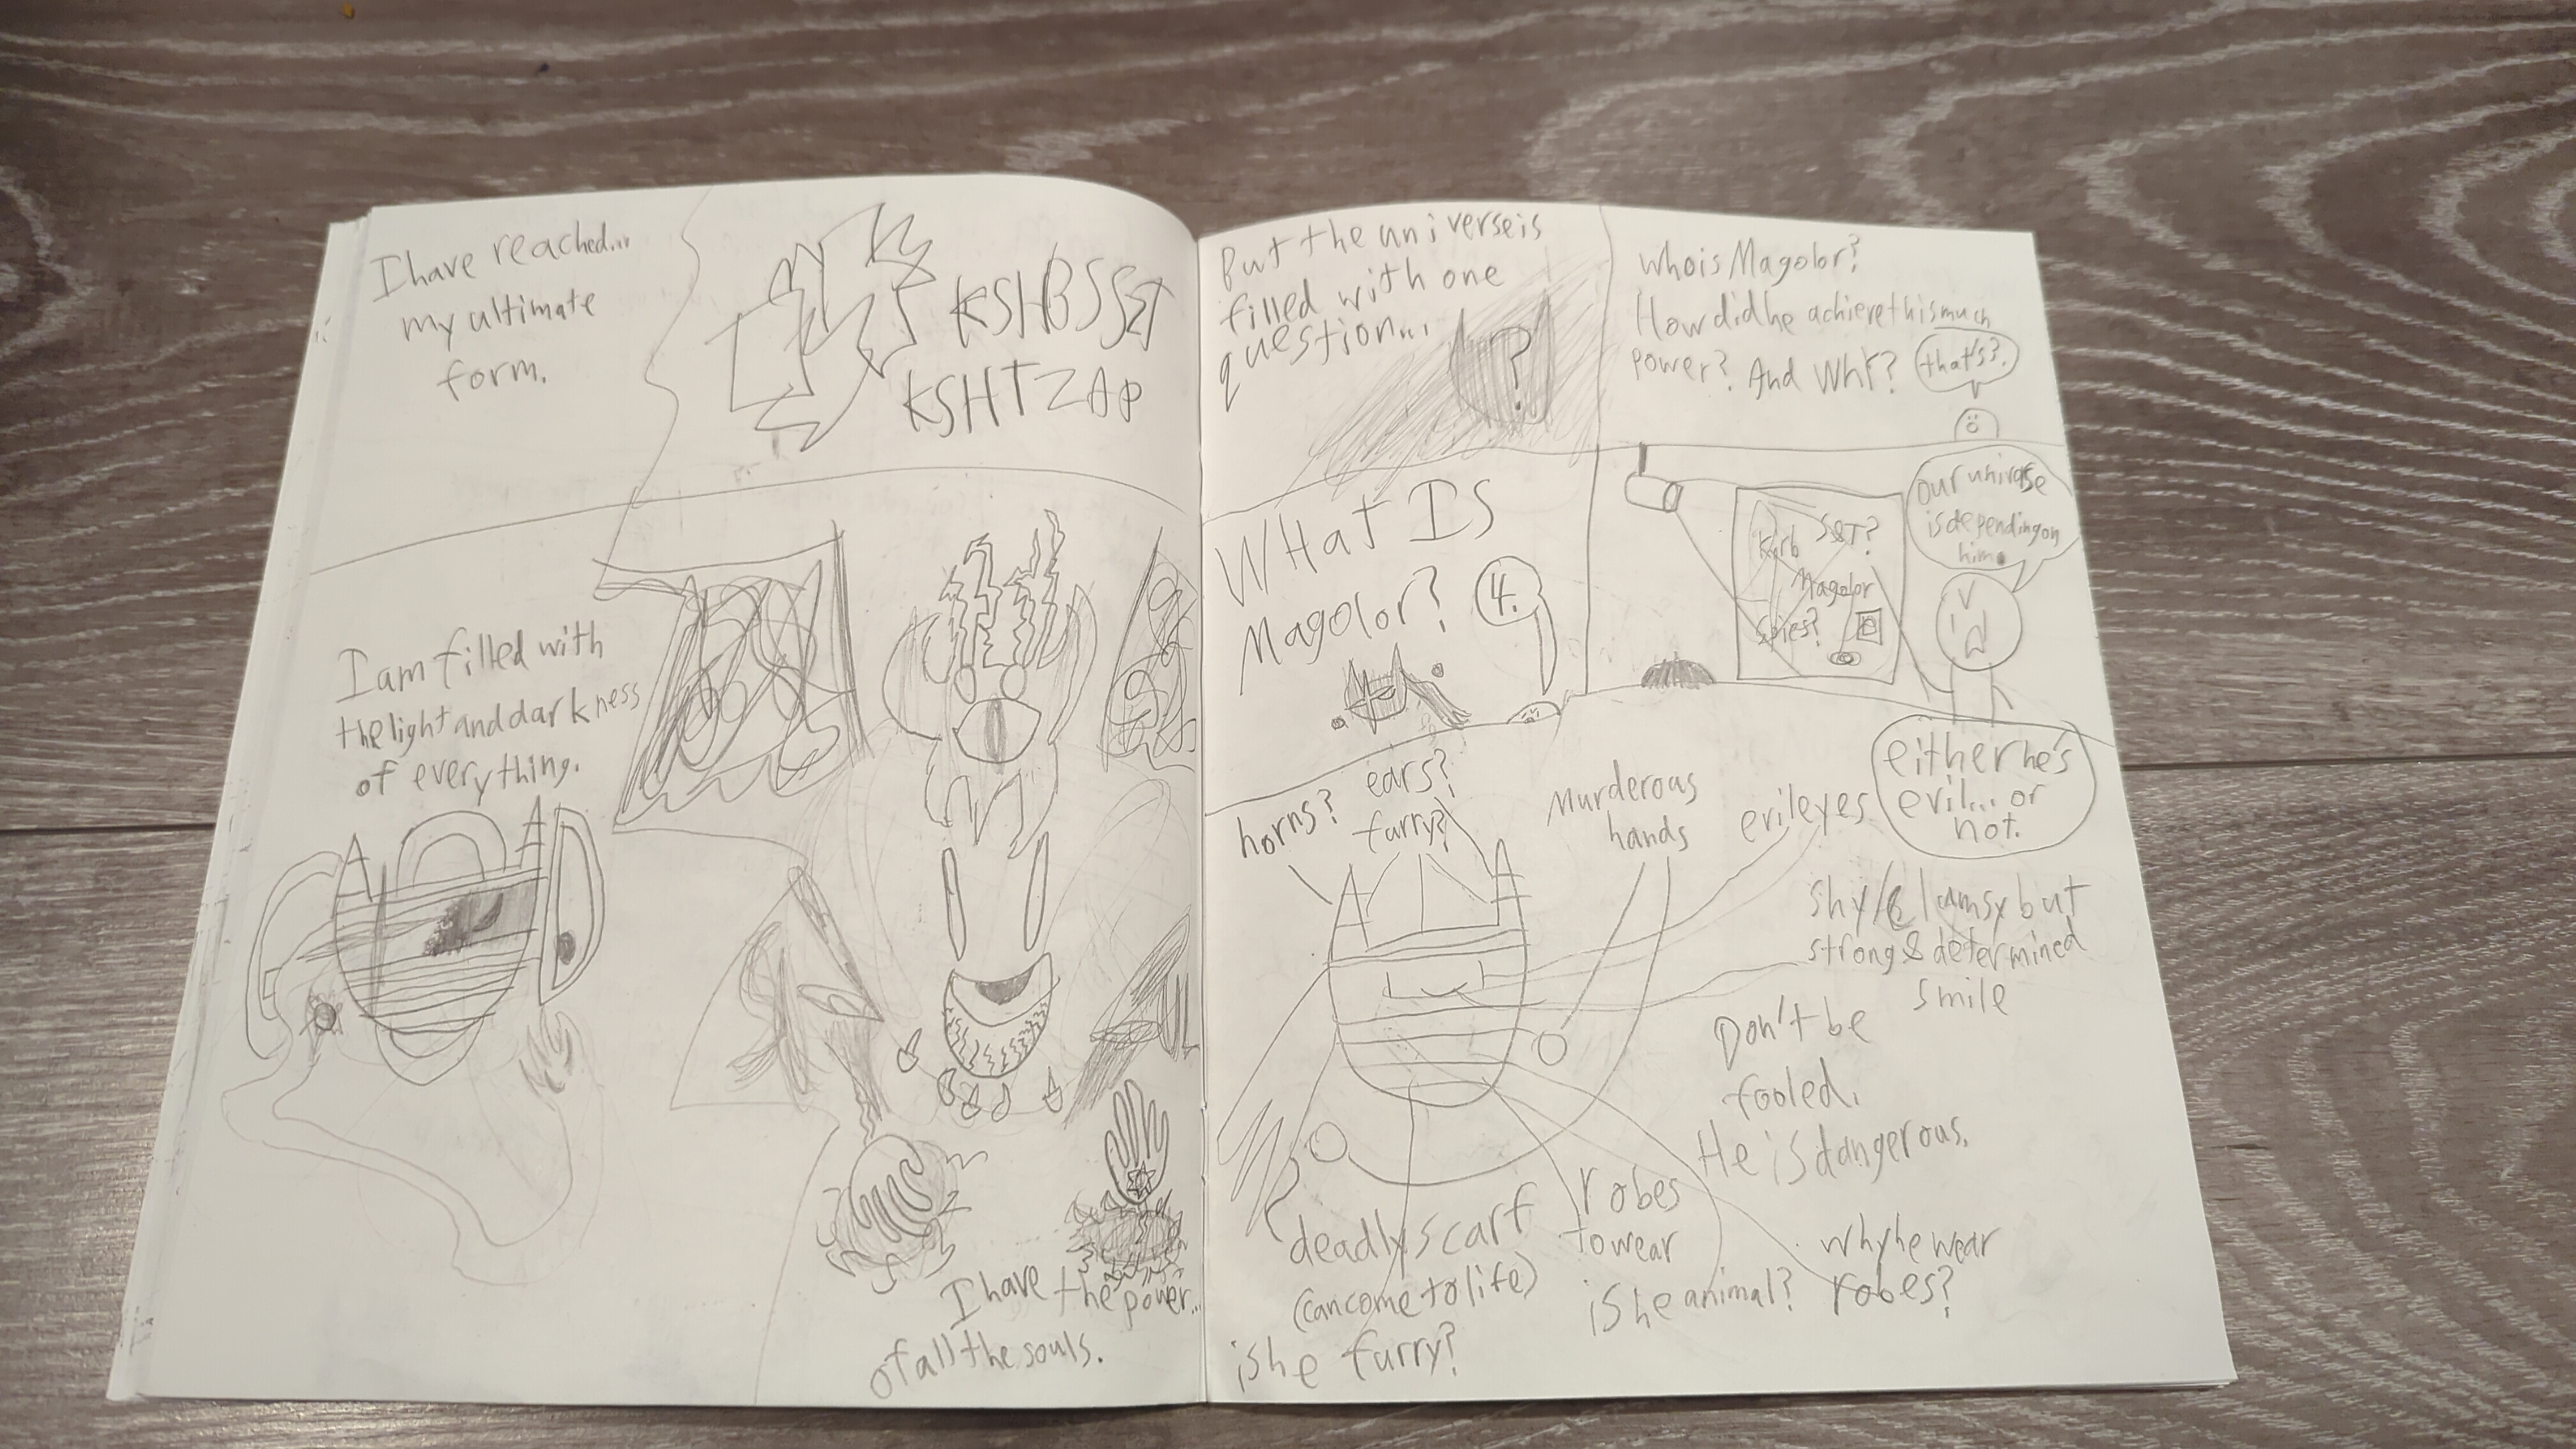 I have reached...
my ultimate
form.
KSHBSSZT
KSHTZAP
I am filled with
the light and darkness
of everything.
I have the power...
of all the souls.
But the universe is
filled with one
question...
?
who is Magolor?
How did he achieve this much
power? And WhY?
that's?
WHat IS
Magolor?
4.
Kirb
S&T?
Magolor
Spies?
Our universe
is depending on
him.
either he's
evil... or
not.
horns?
ears?
furry?
Murderous
hands
evil eyes
shy/clumsy but
strong & determined
smile
Don't be
fooled.
He is dangerous.
deadly scarf
(can come to life)
is he furry?
robes
to wear
is he animal?
why he wear
robes?